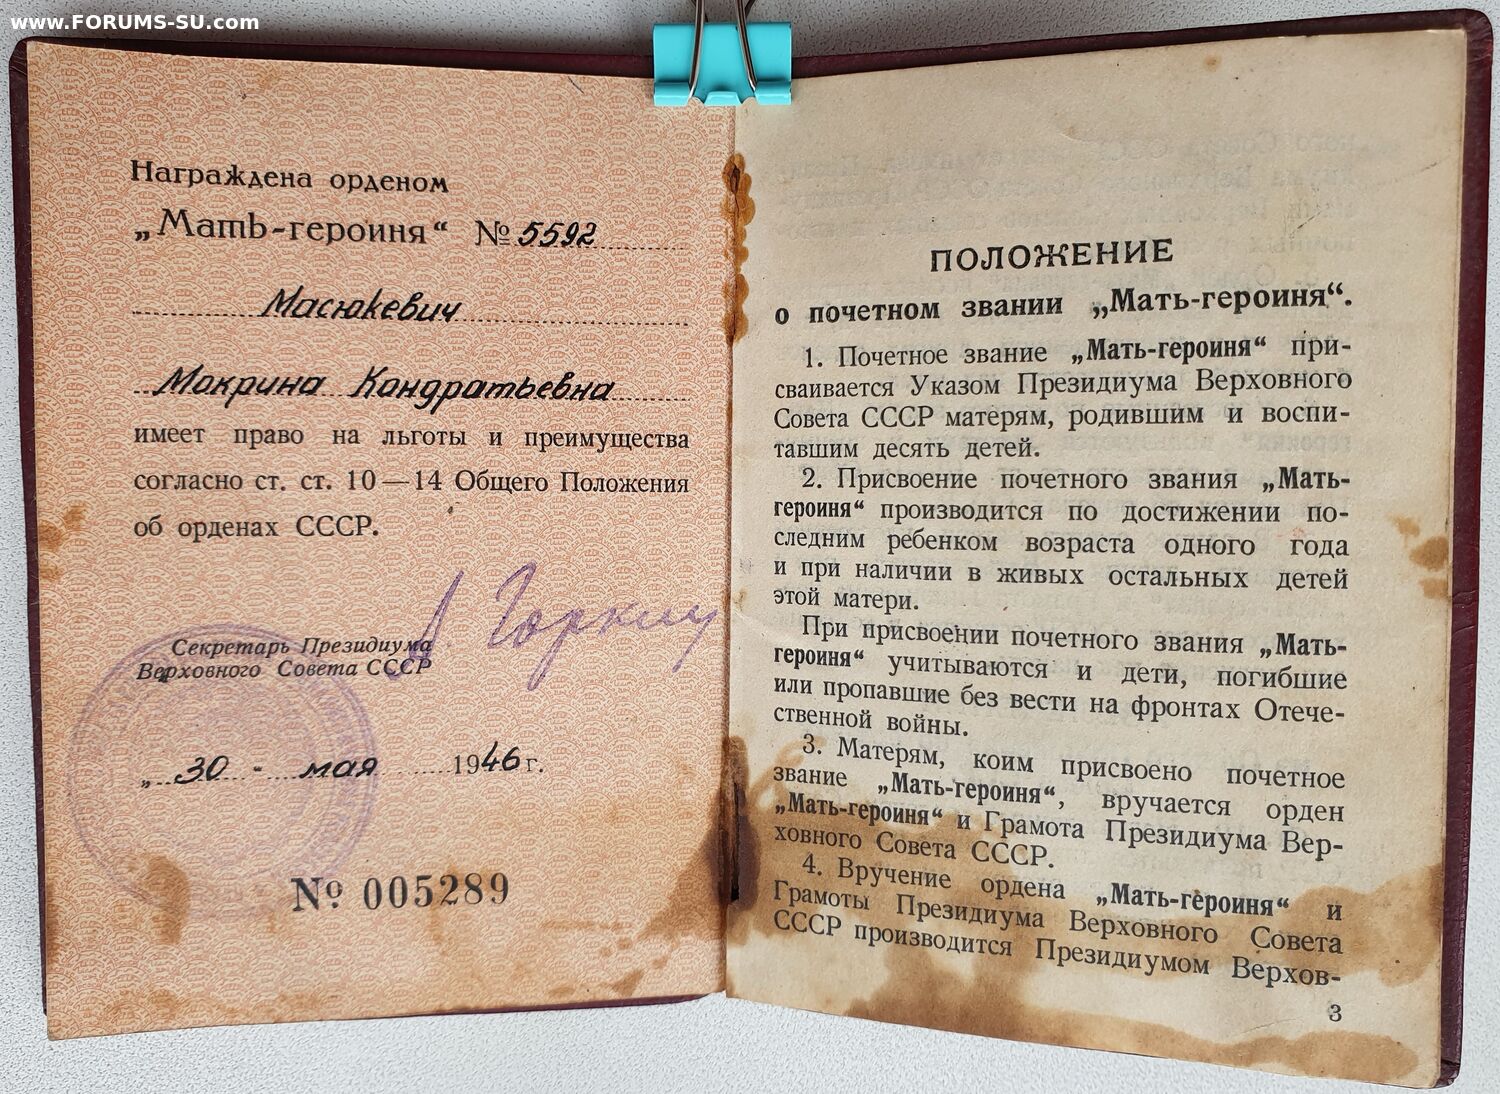 www.FORUMS-SU.com
Награждена орденом
„Мать-героиня“ № 5592
Масюкевич
Мокрина Кондратьевна
имеет право на льготы и преимущества
согласно ст. ст. 10—14 Общего Положения
об орденах СССР.
А. Горкин
Секретарь Президиума
Верховного Совета СССР
„ 30 - мая 1946 г.
№ 005289
ПОЛОЖЕНИЕ
о почетном звании „Мать-героиня“.
1. Почетное звание „Мать-героиня“ при-
сваивается Указом Президиума Верховного
Совета СССР матерям, родившим и воспи-
тавшим десять детей.
2. Присвоение почетного звания „Мать-
героиня“ производится по достижении по-
следним ребенком возраста одного года
и при наличии в живых остальных детей
этой матери.
При присвоении почетного звания „Мать-
героиня“ учитываются и дети, погибшие
или пропавшие без вести на фронтах Отече-
ственной войны.
3. Матерям, коим присвоено почетное
звание „Мать-героиня“, вручается орден
„Мать-героиня“ и Грамота Президиума Вер-
ховного Совета СССР.
4. Вручение ордена „Мать-героиня“ и
Грамоты Президиума Верховного Совета
СССР производится Президиумом Верхов-
3